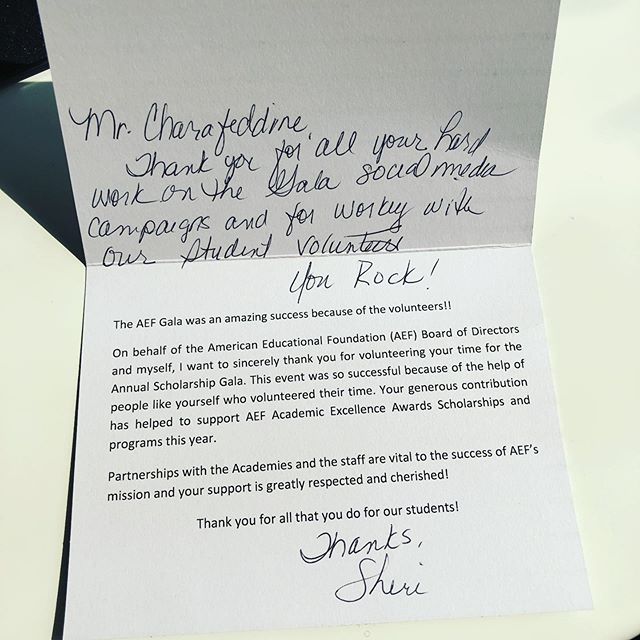 Mr. Charafeddine,
Thank you for all your hard
work on the Gala social media
campaigns and for workig with
our student volunteers
You Rock!
The AEF Gala was an amazing success because of the volunteers!!
On behalf of the American Educational Foundation (AEF) Board of Directors
and myself, I want to sincerely thank you for volunteering your time for the
Annual Scholarship Gala. This event was so successful because of the help of
people like yourself who volunteered their time. Your generous contribution
has helped to support AEF Academic Excellence Awards Scholarships and
programs this year.
Partnerships with the Academies and the staff are vital to the success of AEF's
mission and your support is greatly respected and cherished!
Thank you for all that you do for our students!
Thanks,
Sheri